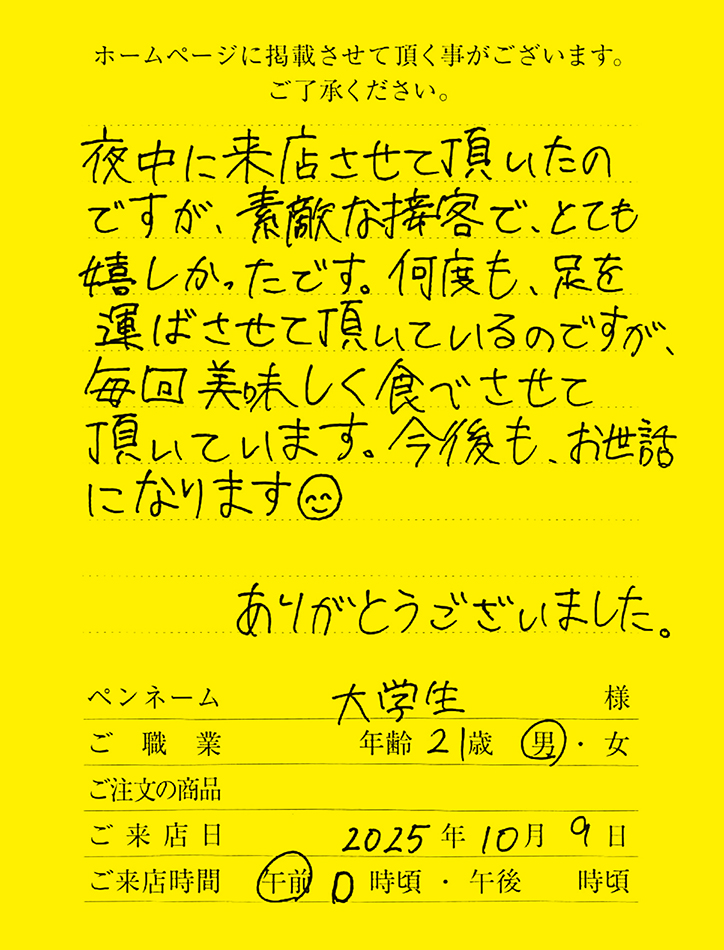 ホームページに掲載させて頂く事がございます。
ご了承ください。
夜中に来店させて頂いたの
ですが、素敵な接客で、とても
嬉しかったです。何度も、足を
運ばさせて頂いているのですが、
毎回美味しく食べさせて
頂いています。今後も、お世話
になります😊
ありがとうございました。
ペンネーム 大学生 様
ご職業 年齢 21歳 男・女
ご注文の商品
ご来店日 2025年10月9日
ご来店時間 午前0時頃・午後 時頃